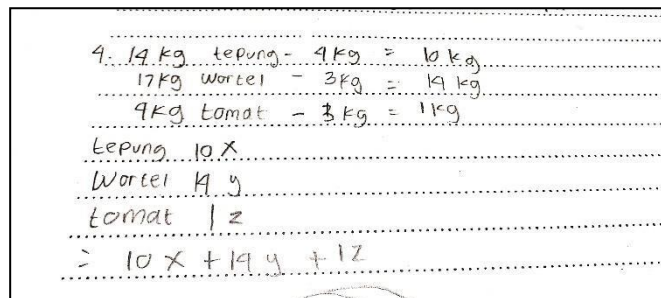 4. 14 kg tepung - 4 kg = 10 kg
17 kg wortel - 3 kg = 14 kg
4 kg tomat - 3 kg = 1 kg
tepung 10 x
Wortel 14 y
tomat 1 z
= 10 x + 14 y + 1z